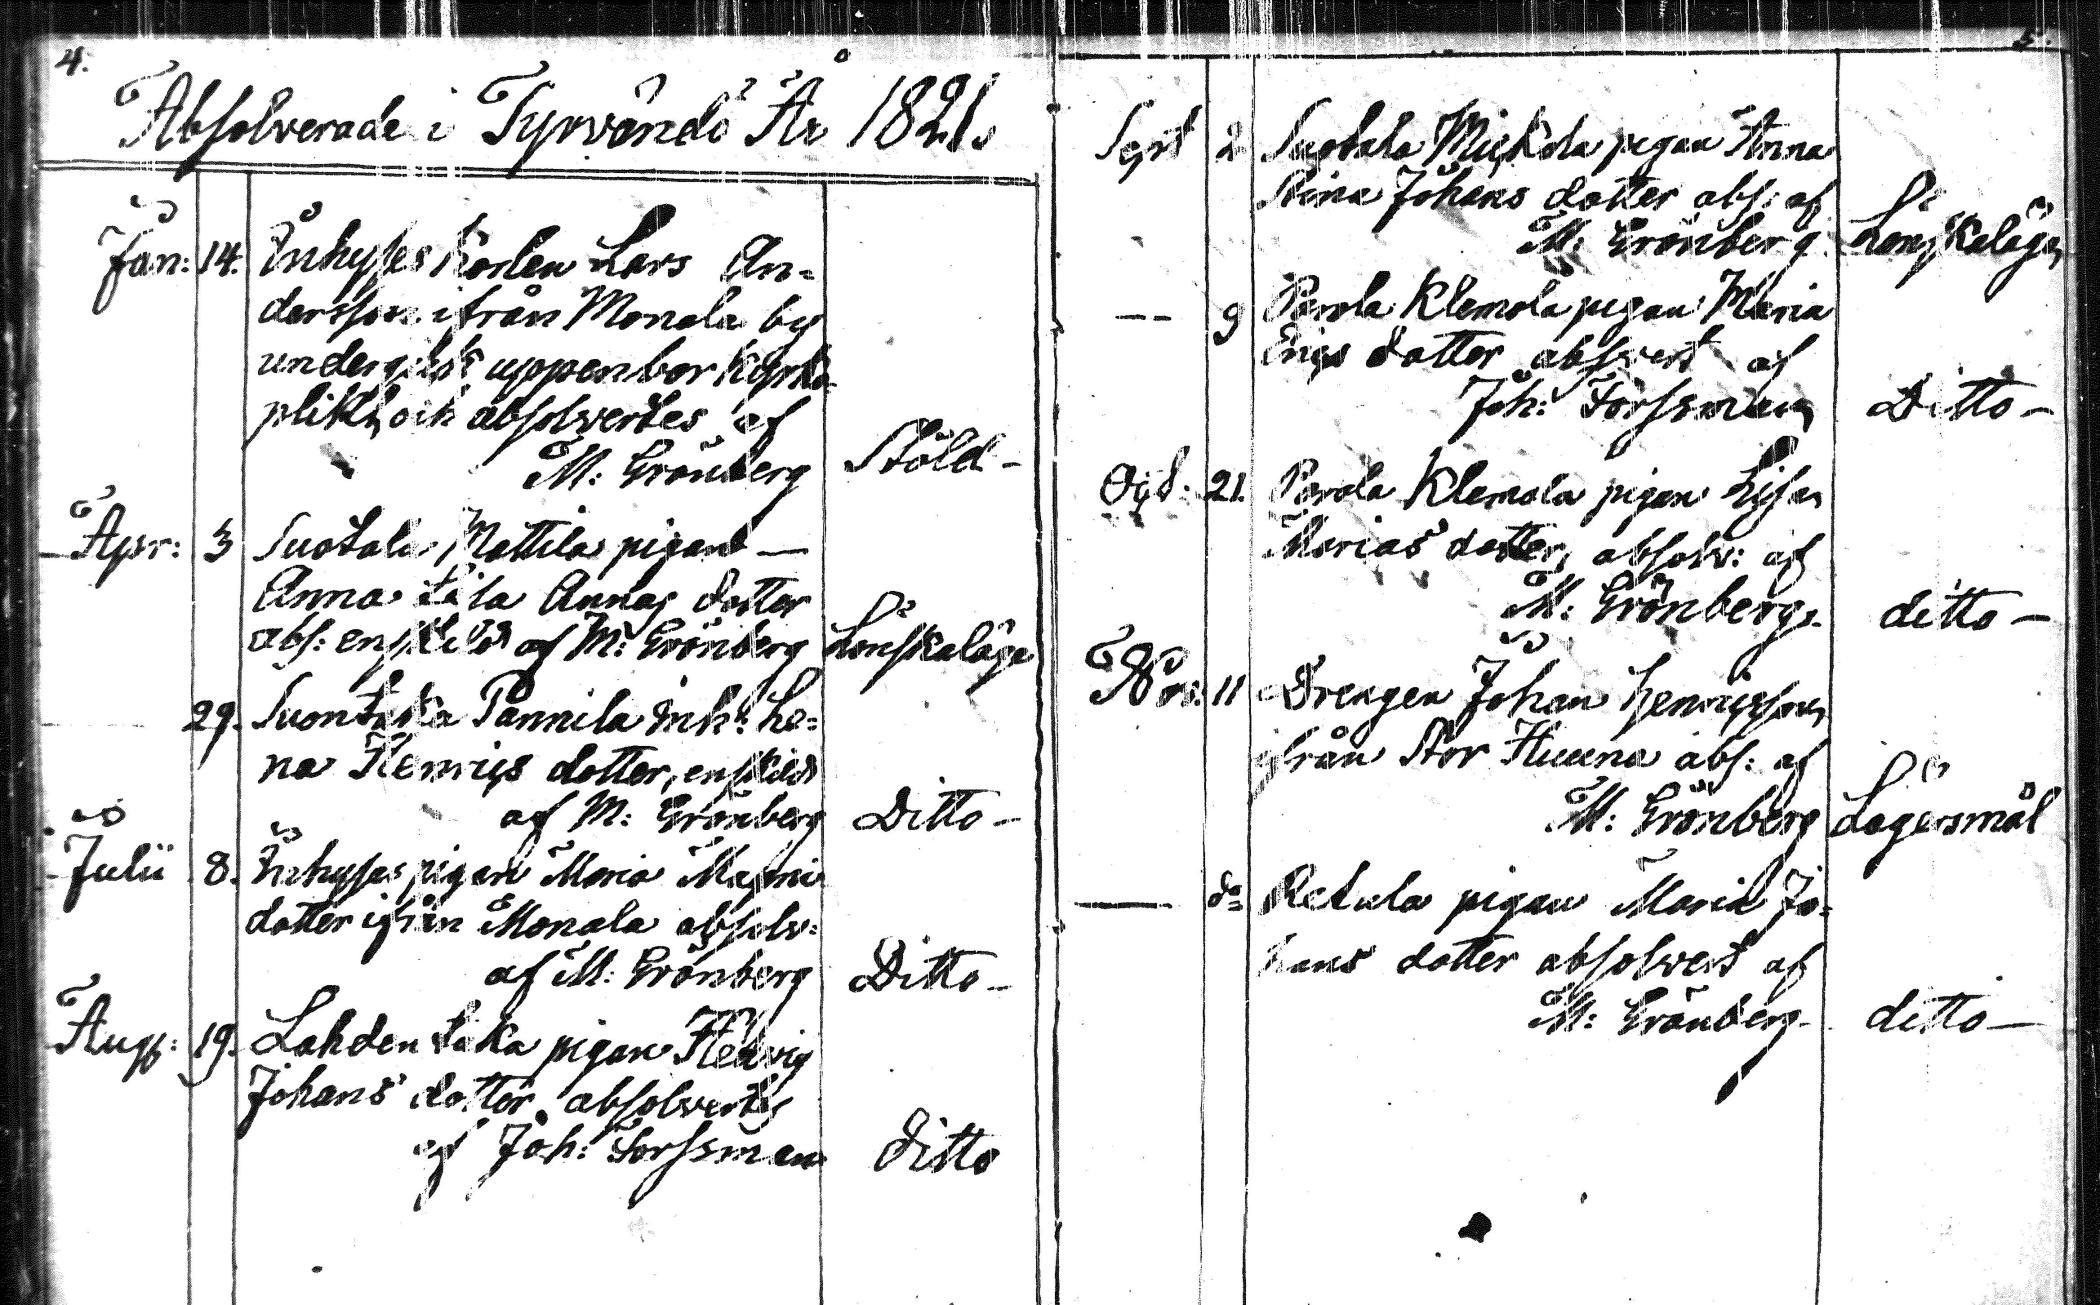 4.
Absolverade i Tyrvändö År 1821.
Jan: 14. Inhyses Karlen Lars An=
dersson ifrån Monala by
undergick uppenbar kyrko
plikt, och absolvertes af
M: Grönberg Stöld -
Apr: 3 Suotala Mattila pigan —
Anna Lisa Annas dotter
abs: enskild af M: Grönberg Lönskaläge
29. Suontaka Pannila inh: He=
na Henrics dotter, enskild
af M: Grönberg Ditto -
Julii 8. Inhyses pigan Maria
dotter ifrån Monala absolv:
af M: Grönberg Ditto -
Aug: 19. Lahden taka pigan Hedvig
Johans dotter absolverts
af Joh: Forssman Ditto
5.
Sept 2 Suotala Mickola pigan Anna
Stina Johans dotter abs: af
M: Grönberg. Lönskaläge
-- 9 Parola Klemola pigan Maria
Erics dotter absvert af
Joh: Forssman Ditto -
Oct. 21. Parola Klemola pigan Lisa
Marias dotter, absolv: af
M: Grönberg. ditto -
Nov. 11 Drengen Johan Henricsson
ifrån Stor Huuna abs: af
M: Grönberg Lägersmål
— do Retula pigan Maria Jo=
hans dotter absolvert af
M: Grönberg - ditto —